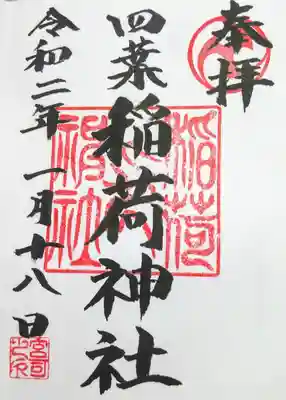 奉拝
四葉稲荷神社
令和二年一月十八日
稲荷神社
宮司之印